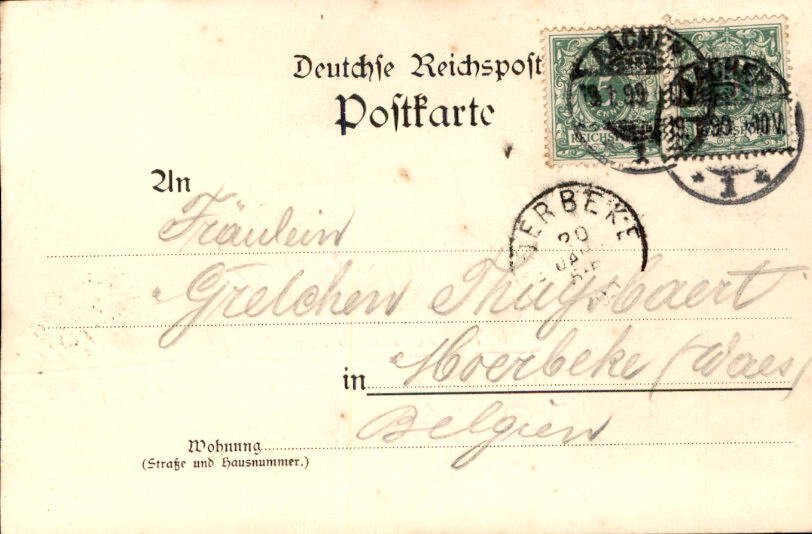 Deutsche Reichspost
Postkarte
AACHEN
19.1.99.
1
AACHEN
19.1.99. 10V.
1
REICHSPOST
An
Fräulein
ERBEKE
20
JAN
Gretchen Thuysbaert
in Moerbeke (Waes)
Belgien
Wohnung
(Straße und Hausnummer.)